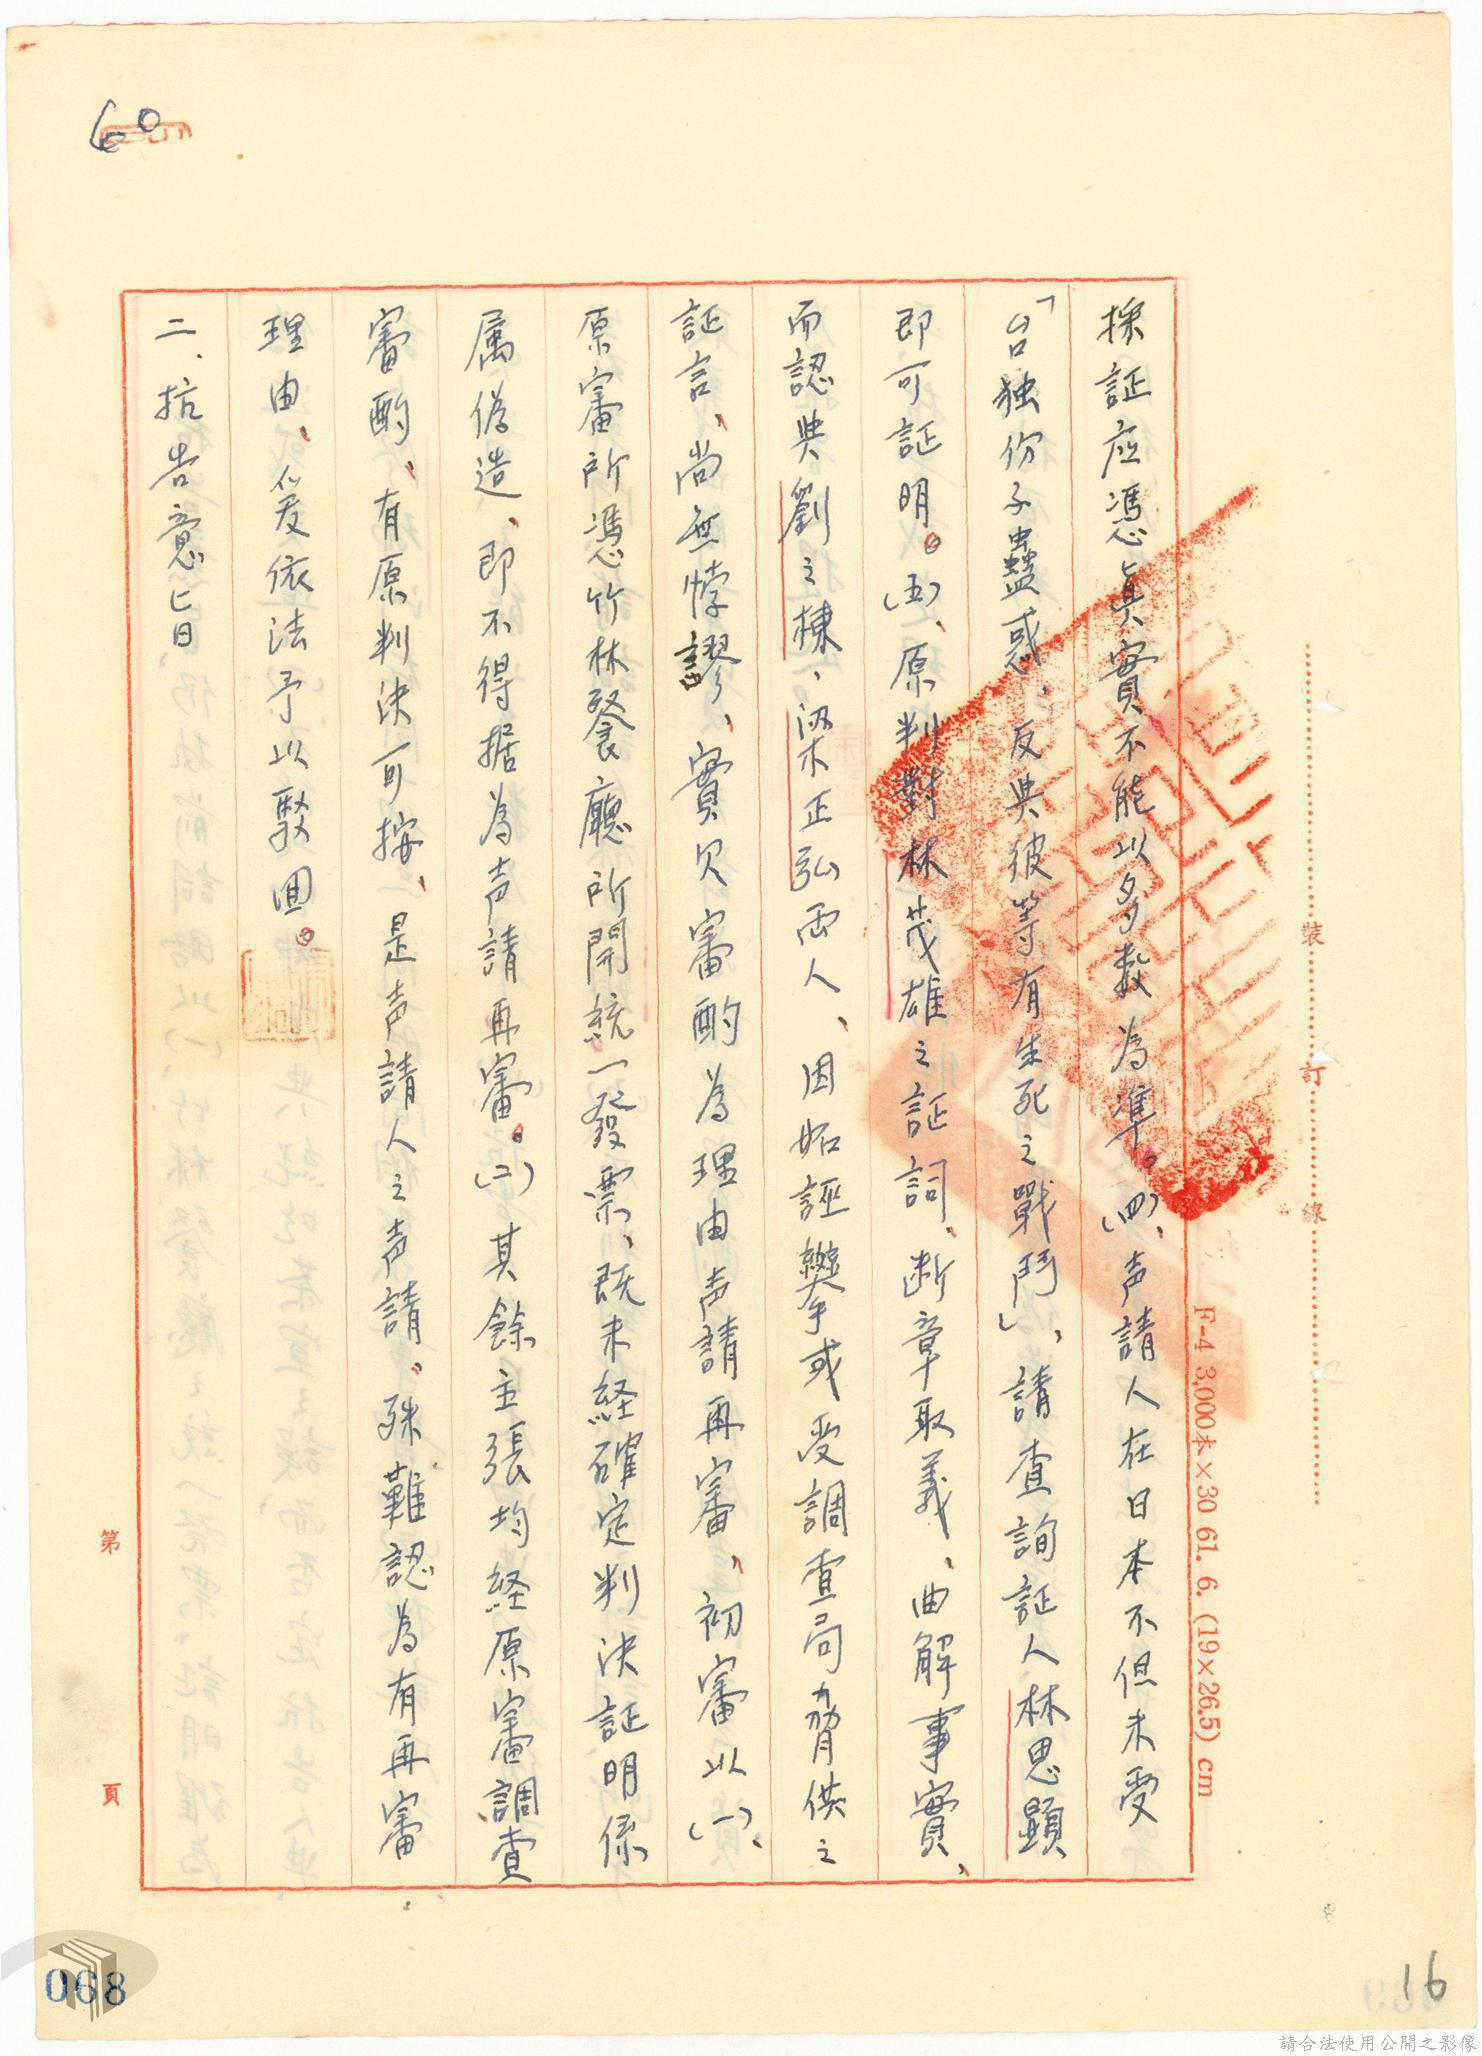 60
採証应憑真實不能以多数為準。(四)、声請人在日本不但未受
「台独份子蠱惑、反與彼等有生死之戰鬥」、請查詢証人林思顕
即可証明。(五)、原判對林茂雄之証詞、断章取義、曲解事實、
而認與劉之棟、梁正弘両人、因妬誣攀或受調查局脅供之
証言、尚無悖謬、實欠審酌為理由声請再審、初審以(一)、
原審所憑竹林餐廳所開統一發票、既未経確定判決証明係
属偽造、即不得据為声請再審。(二)其餘主張均経原審調查
審酌、有原判決可按、是声請人之声請、殊難認為有再審
理由、爰依法予以駁回。
二、抗告意旨
裝
訂
線
F-4 3,000本×30 61. 6. (19×26.5) cm
第
頁
068
16
請合法使用公開之影像